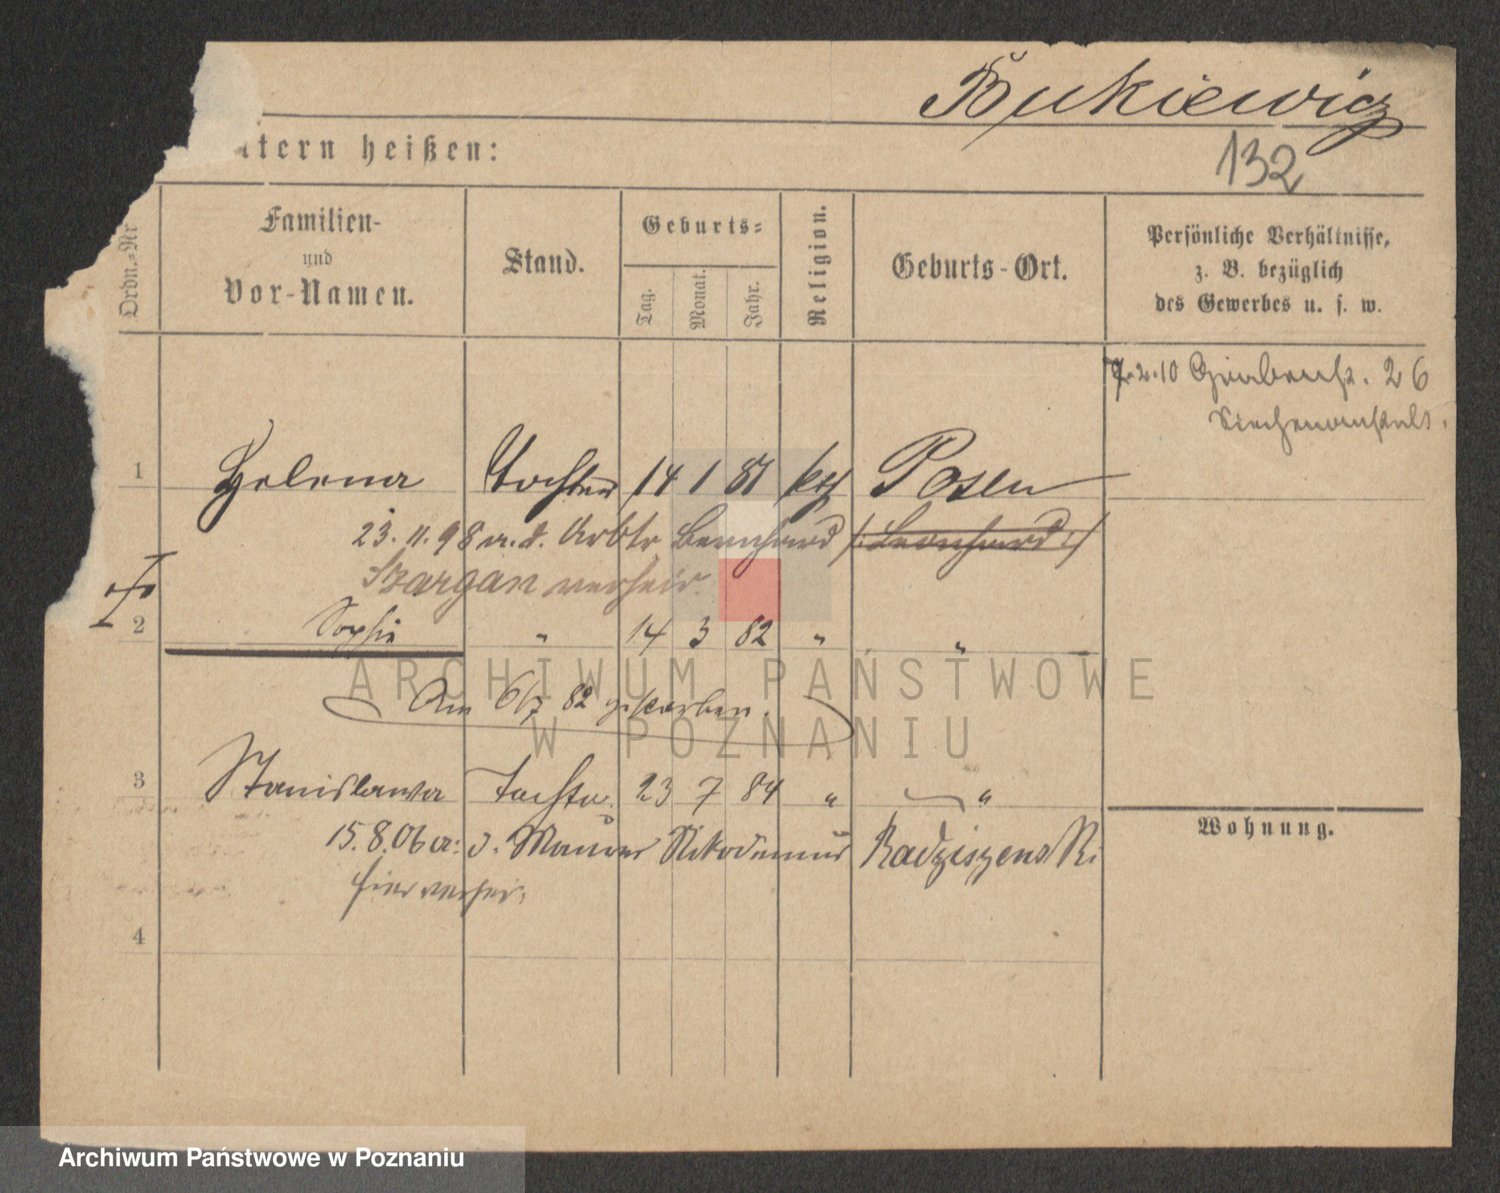 Bukiewicz
132
ltern heißen:
Ordn.-Nr
Familien-
und
Vor-Namen.
Stand.
Geburts-
Tag.
Monat.
Jahr.
Religion.
Geburts-Ort.
Persönliche Verhältnisse,
z. B. bezüglich
des Gewerbes u. s. w.
7.2.10 Grabenstr. 26
Siechenanstalt.
1 Helena Tochter 14 1 81 kath Posen
23.11.98 m. d. Arbtr Bernhard /: Leonhard :/
Szargan verheir.
2 Sophie " 14 3 82 " "
Am 6/7 82 gestorben.
3 Stanislawa Tochter 23 7 84 " "
15.8.06 a: d. Maurer Nikodemus Radziszenski
hier verheir.
4
Wohnung.
ARCHIWUM PAŃSTWOWE
W POZNANIU
Archiwum Państwowe w Poznaniu